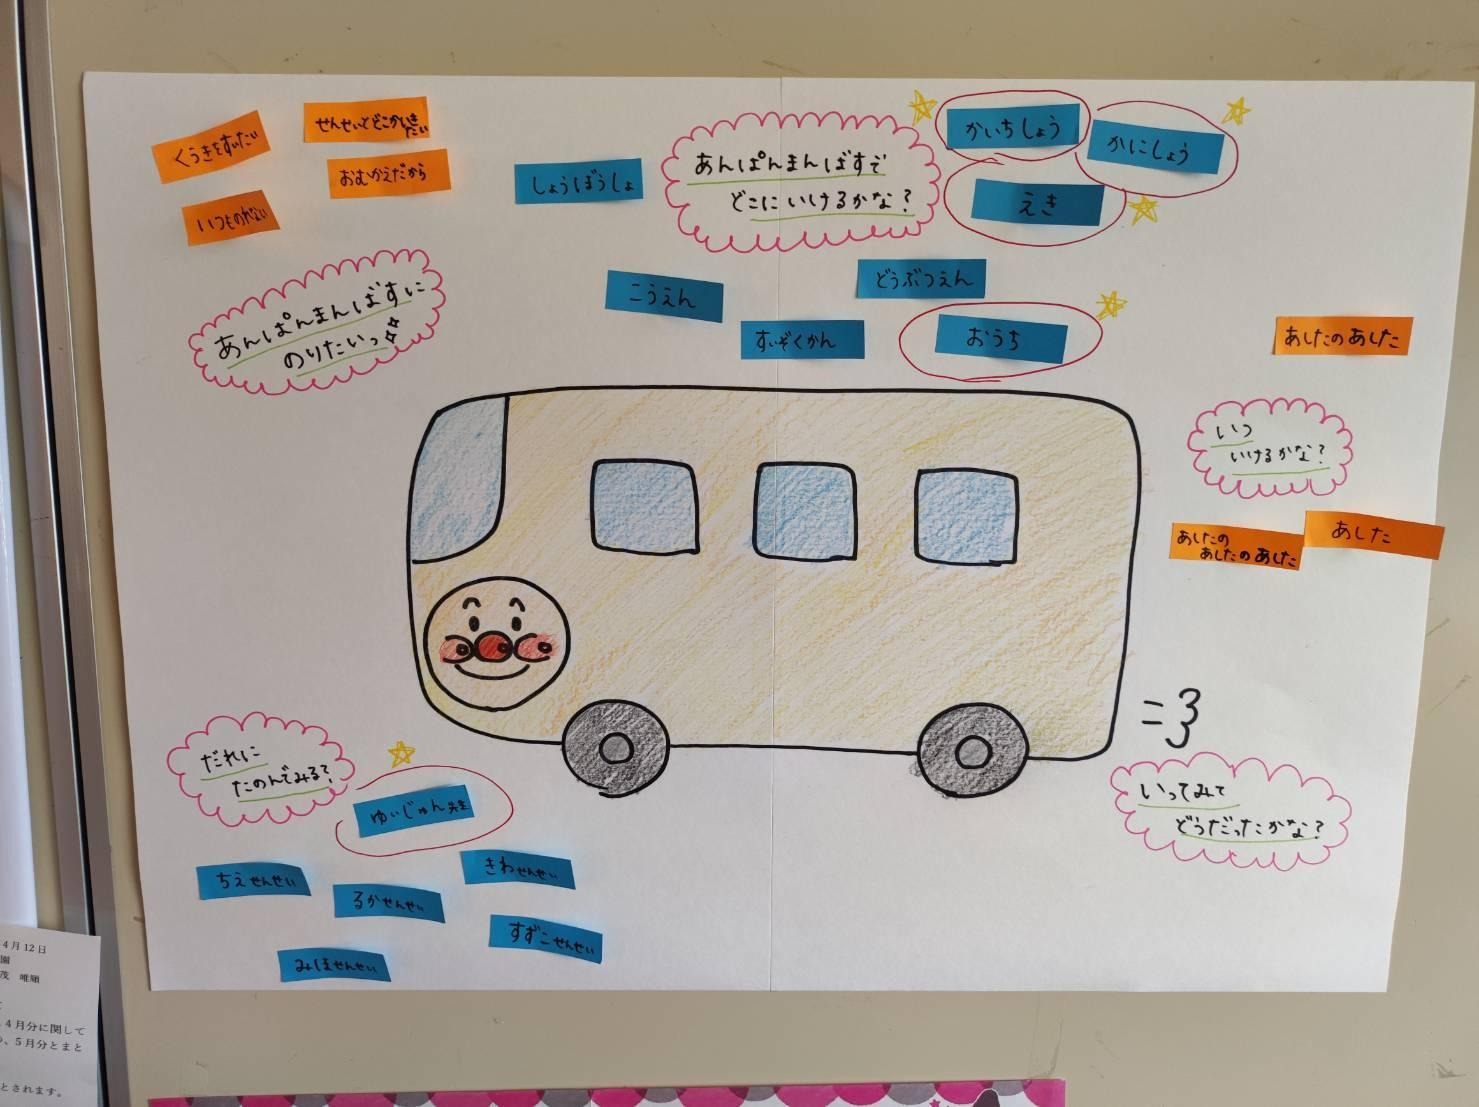 くうきをすいたい
せんせいとどこかいき
たい
おむかえだから
いつものれない
あんぱんまんばすに
のりたいっ
しょうぼうしょ
あんぱんまんばすで
どこにいけるかな?
かいちしょう
かにしょう
えき
こうえん
どうぶつえん
すいぞくかん
おうち
あしたのあした
いつ
いけるかな?
あしたの
あしたのあした
あした
だれに
たのんでみる?
ゆいじゅん先生
ちえせんせい
るかせんせい
きわせんせい
すずこせんせい
みほせんせい
いってみて
どうだったかな?
4月12日
園
茂 唯順
4月分に関して
、5月分とまと
とされます。